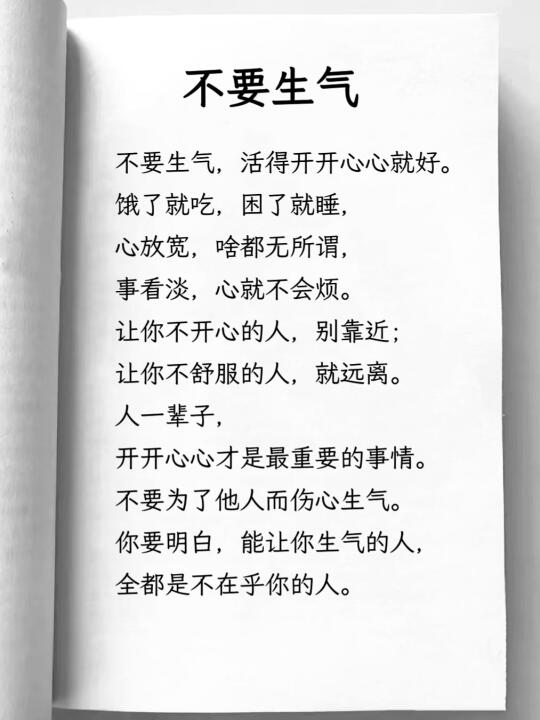 不要生气
不要生气，活得开开心心就好。
饿了就吃，困了就睡，
心放宽，啥都无所谓，
事看淡，心就不会烦。
让你不开心的人，别靠近；
让你不舒服的人，就远离。
人一辈子，
开开心心才是最重要的事情。
不要为了他人而伤心生气。
你要明白，能让你生气的人，
全都是不在乎你的人。